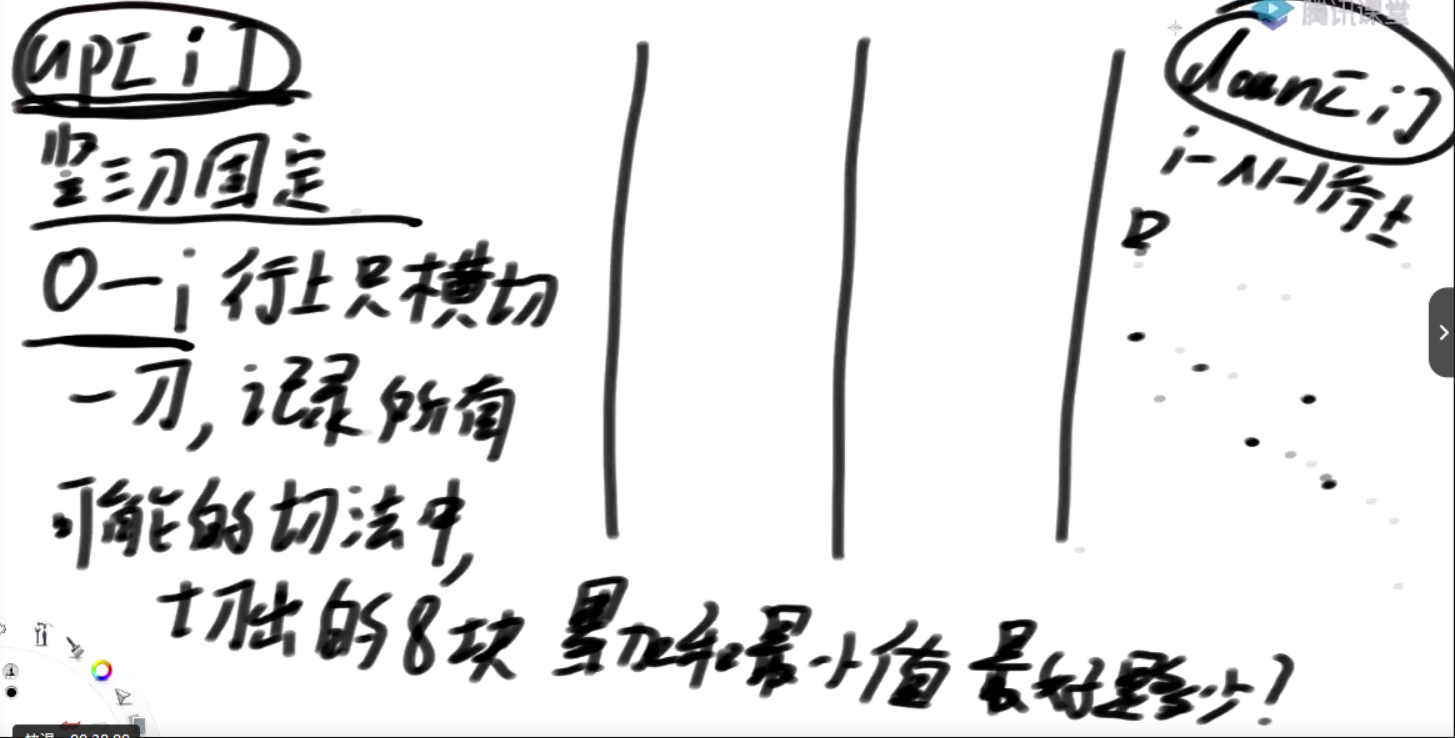 up[i]
竖三刀固定
0-i行上只横切
一刀,记录所有
可能的切法中,
切出的8块 累加和最小值 最好是多少?
腾讯课堂
down[i]
i-N-1行上